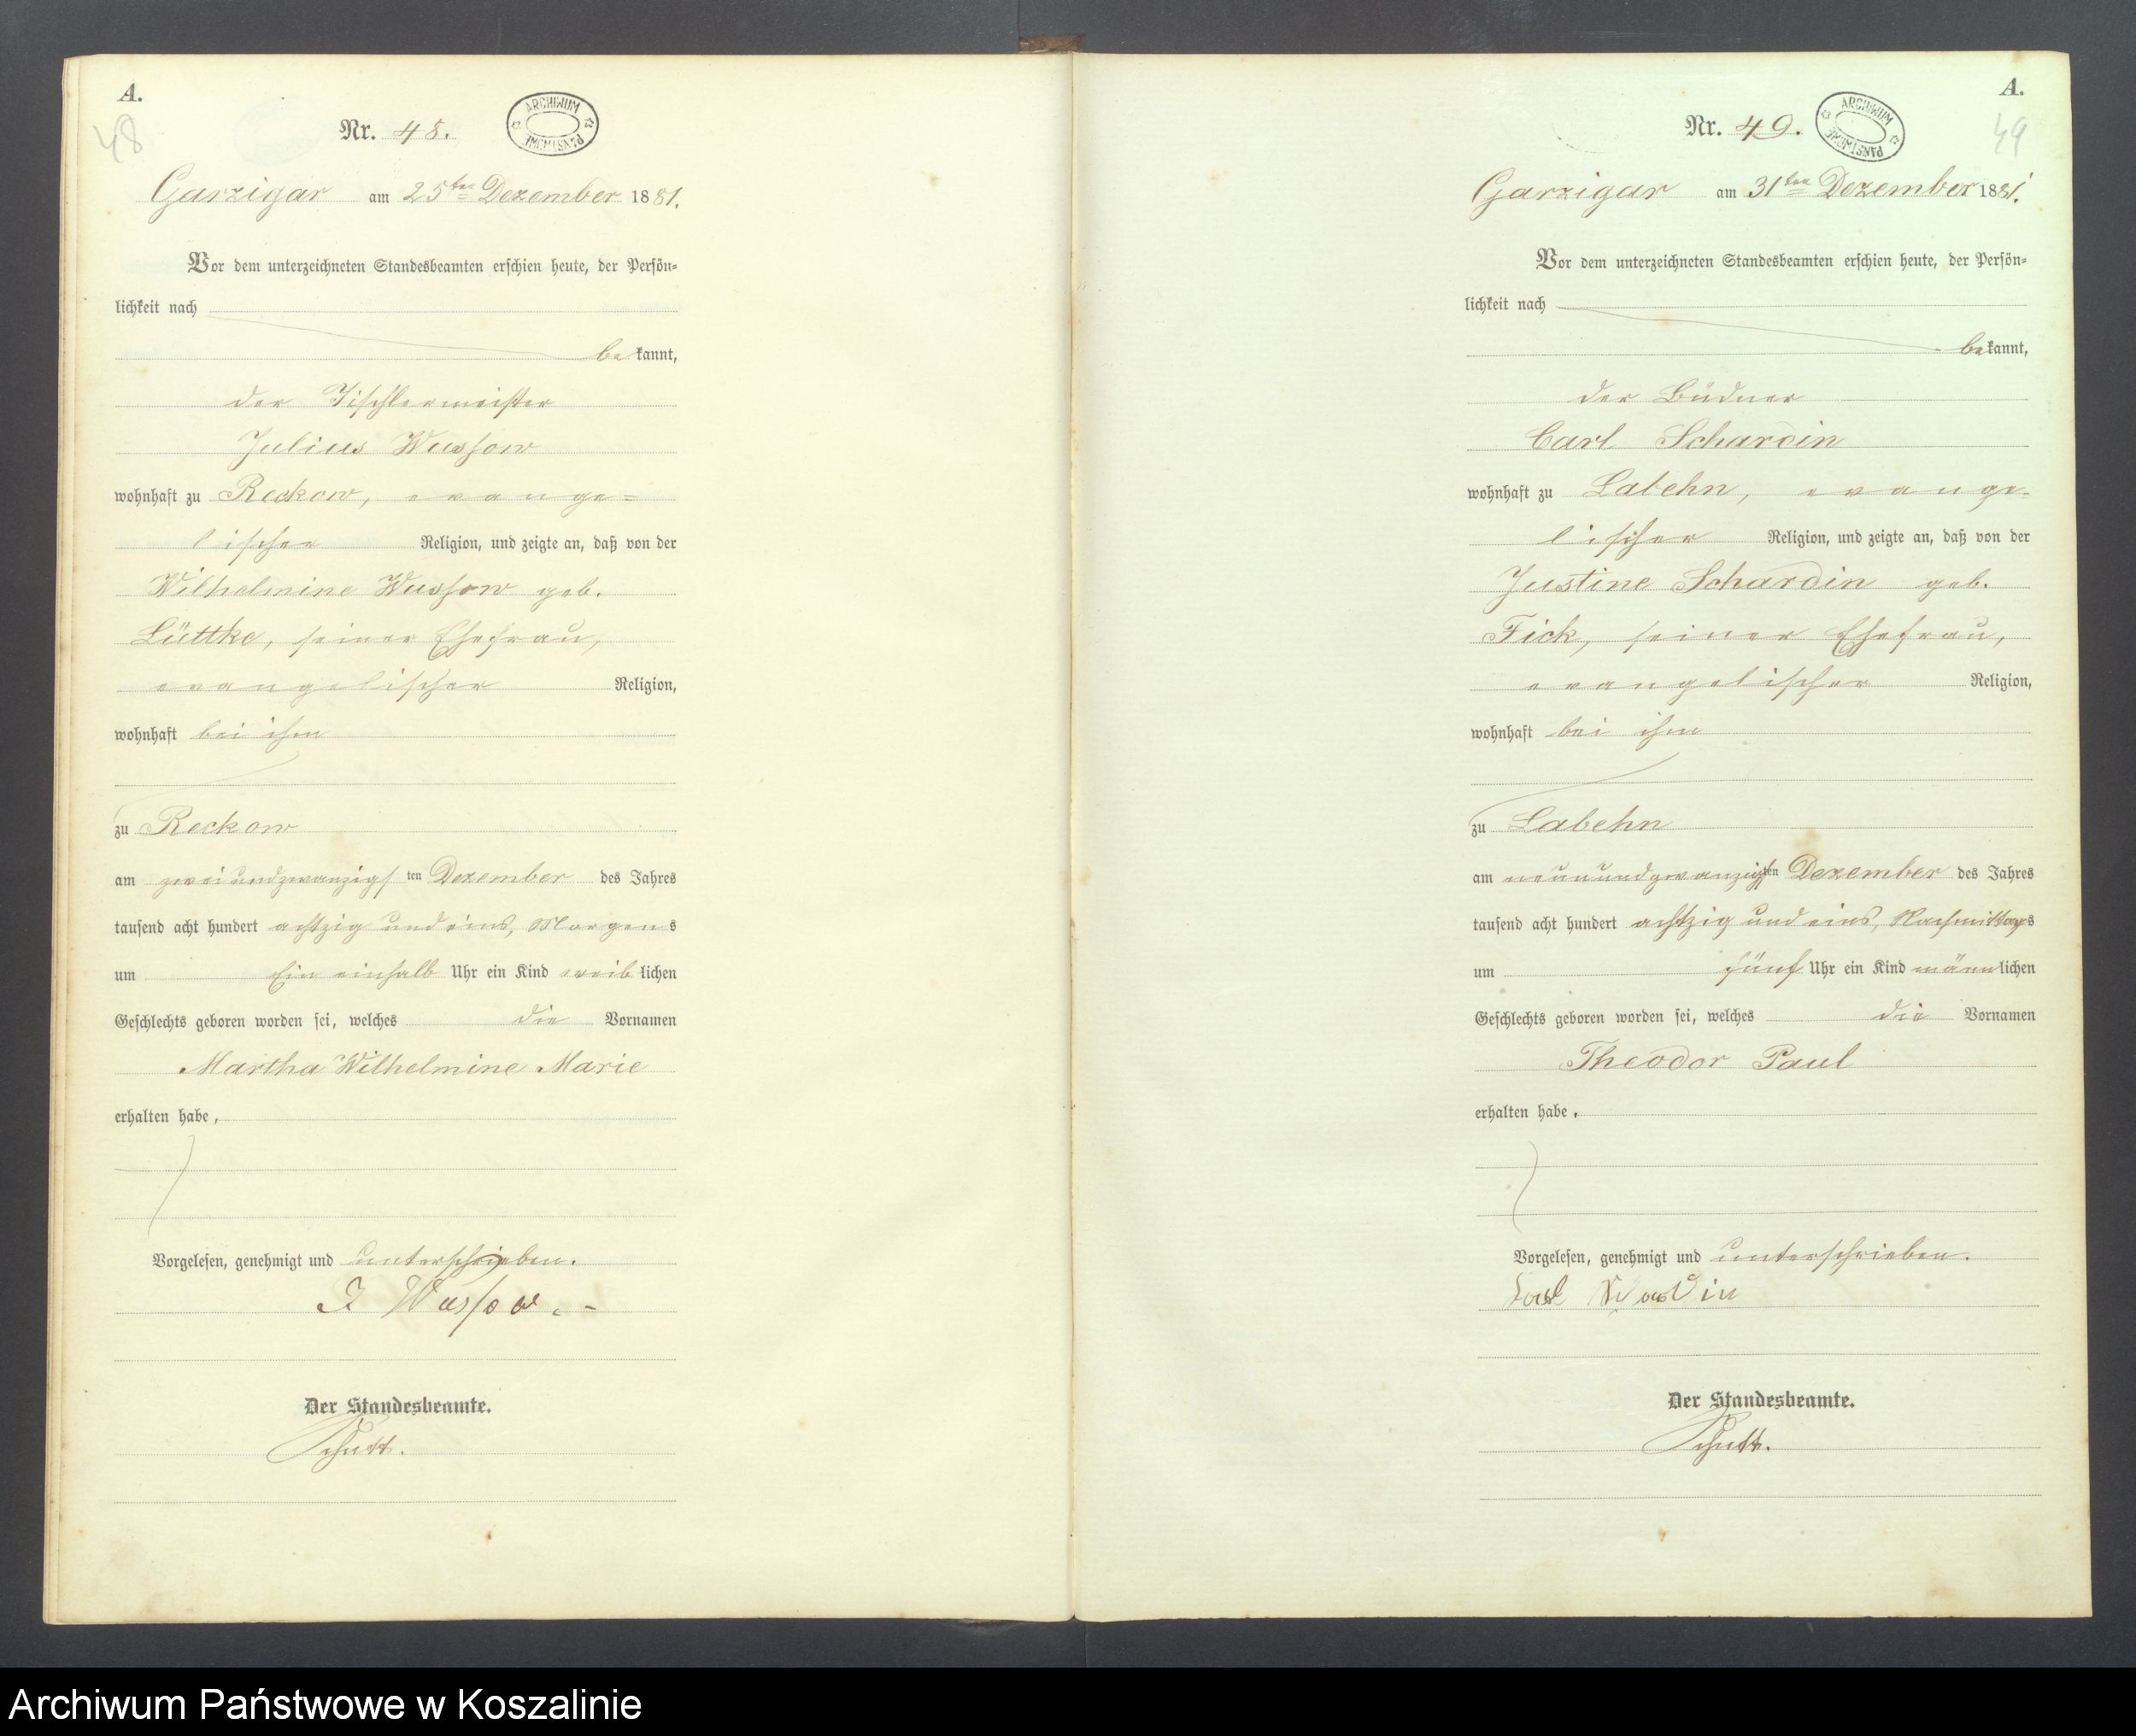 A.
48
Nr. 48.
ARCHIWUM PAŃSTWOWE
Garzigar am 25ten Dezember 1881.
Vor dem unterzeichneten Standesbeamten erschien heute, der Persön-
lichkeit nach
bekannt,
der Tischlermeister
Julius Wussow
wohnhaft zu Reckow, evange=
lischer Religion, und zeigte an, daß von der
Wilhelmine Wussow geb.
Lüttke, seiner Ehefrau,
evangelischer Religion,
wohnhaft bei ihm
zu Reckow
am zweiundzwanzigsten Dezember des Jahres
tausend acht hundert achtzig und eins, Morgens
um Ein einhalb Uhr ein Kind weiblichen
Geschlechts geboren worden sei, welches die Vornamen
Martha Wilhelmine Marie
erhalten habe.
Vorgelesen, genehmigt und unterschrieben.
J Wussow.
Der Standesbeamte.
Schutt.
A.
49
Nr. 49.
ARCHIWUM PAŃSTWOWE
Garzigar am 31ten Dezember 1881.
Vor dem unterzeichneten Standesbeamten erschien heute, der Persön-
lichkeit nach
bekannt,
der Büdner
Carl Schardin
wohnhaft zu Labehn, evange-
lischer Religion, und zeigte an, daß von der
Justine Schardin geb.
Fick, seiner Ehefrau,
evangelischer Religion,
wohnhaft bei ihm
zu Labehn
am neunundzwanzigsten Dezember des Jahres
tausend acht hundert achtzig und eins, Nachmittags
um fünf Uhr ein Kind männlichen
Geschlechts geboren worden sei, welches die Vornamen
Theodor Paul
erhalten habe.
Vorgelesen, genehmigt und unterschrieben.
Carl Schardin
Der Standesbeamte.
Schutt.
Archiwum Państwowe w Koszalinie